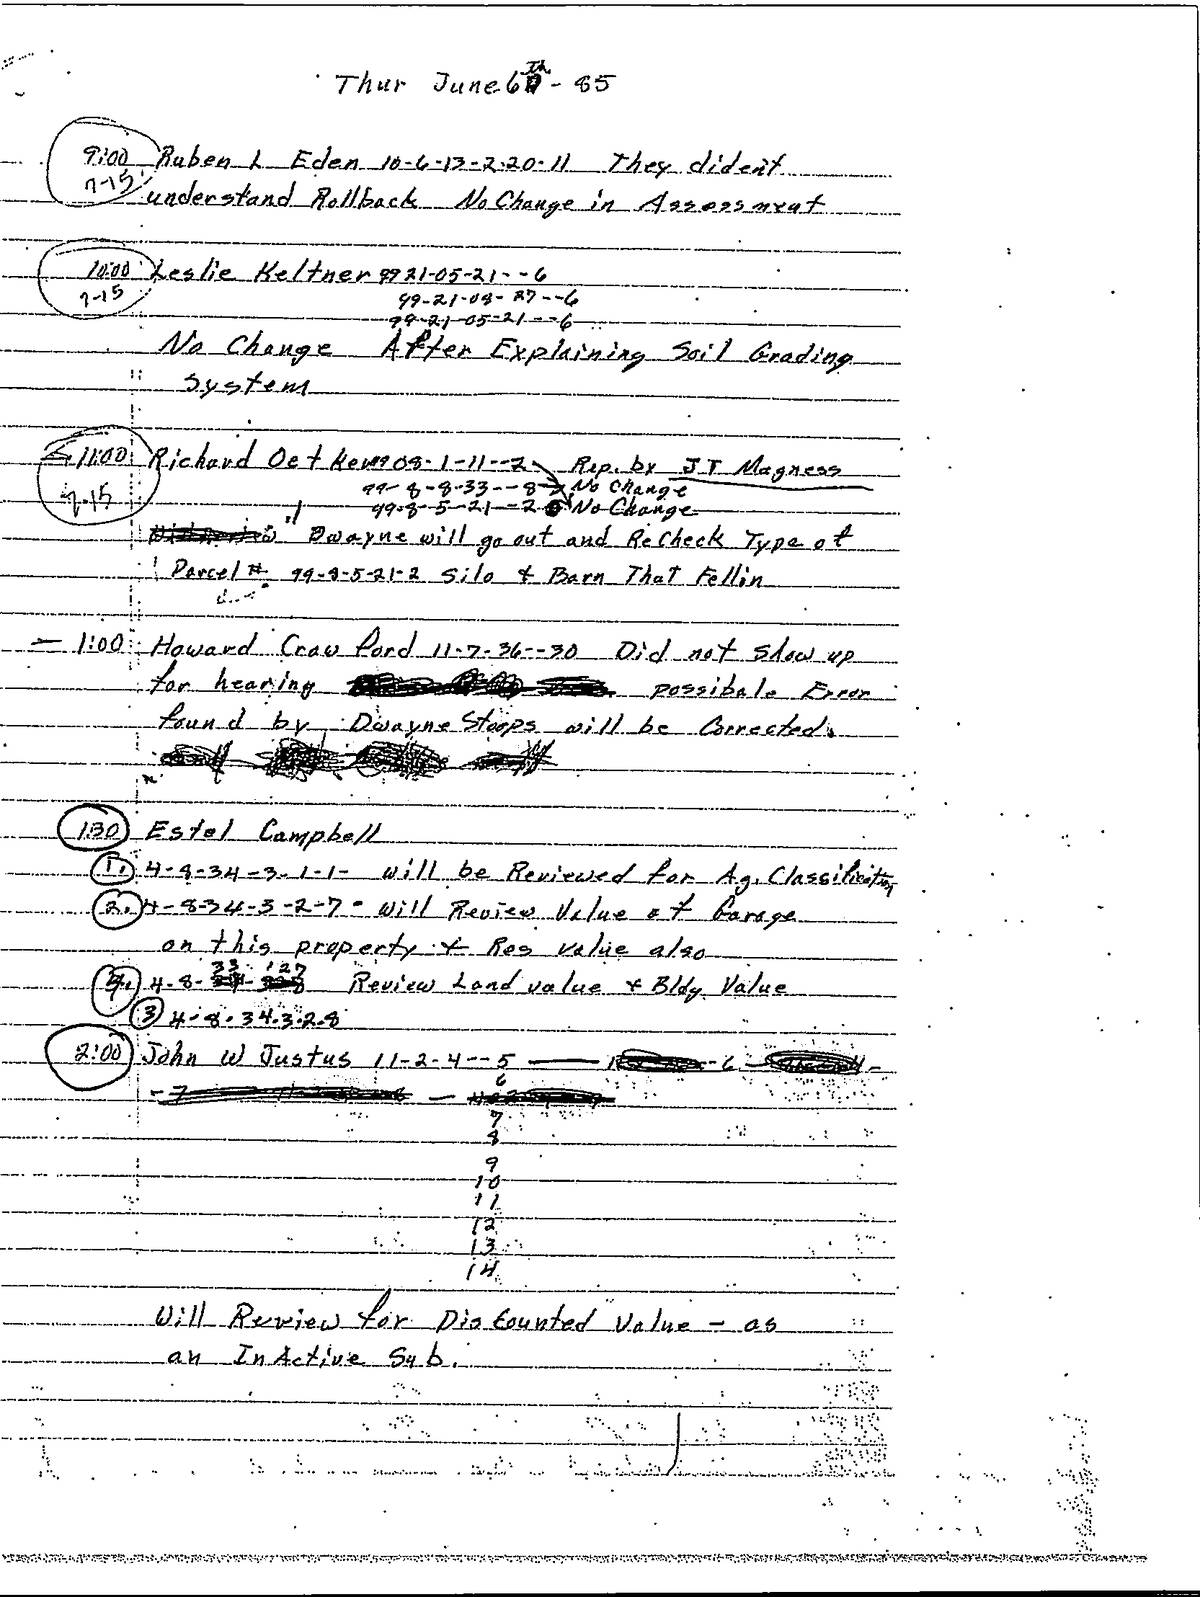 Thur June 6th - 85
9:00 Ruben L Eden 10-6-13-2-20-11 They dident
7-15 understand Rollback No Change in Assessment
10:00 Leslie Keltner 99 21-05-21--6
7-15 99-21-08-27--6
99-21-05-21--6
No Change After Explaining Soil Grading
System
11:00 Richard Oetken 9908-1-11--2 Rep. by JT Magness
99-8-8-33---8 No Change
7-15 99-8-5-21--2 No Change
Dwayne will go out and ReCheck Type of
Parcel # 99-8-5-21-2 Silo & Barn That Fellin
1:00 Howard Crawford 11-7-36--30 Did not Show up
for hearing possibale Error
found by Dwayne Stoops will be Corrected.
1:30 Estel Campbell
1. 4-8-34-3-1-1- will be Reviewed for Ag. Classification
2. 4-8-34-3-2-7- Will Review Value of Garage
on this property & Res value also
33 127
4. 4-8- Review Land value & Bldg Value
3 4-8-34-3-2-8
2:00 John W Justus 11-2-4--5 -6
6
-7
7
8
9
10
11
12
13
14
Will Review for Discounted Value - as
an InActive Sub.